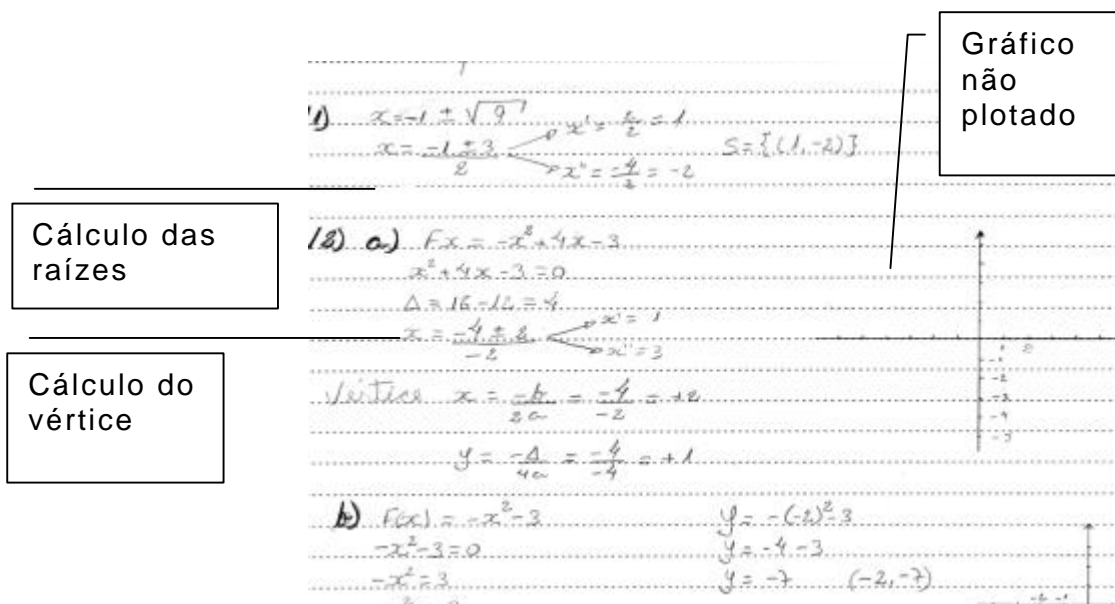 Gráfico
não
plotado
Cálculo das
raízes
Cálculo do
vértice
11) x = -1 ± √9
x = -1 ± 3 / 2 x' = 2/2 = 1
x" = -4/2 = -2
S = {(1, -2)}
12) a) Fx = -x² + 4x - 3
x² + 4x - 3 = 0
Δ = 16 - 12 = 4
x = -4 ± 2 / -2 x' = 1
x" = 3
Vértice x = -b/2a = -4/-2 = +2
y = -Δ/4a = -4/-4 = +1
1 2
-1
-2
-3
-4
-5
b) F(x) = -x² - 3
-x² - 3 = 0
-x² = 3
y = -(-2)² - 3
y = -4 - 3
y = -7 (-2, -7)
-2 -1